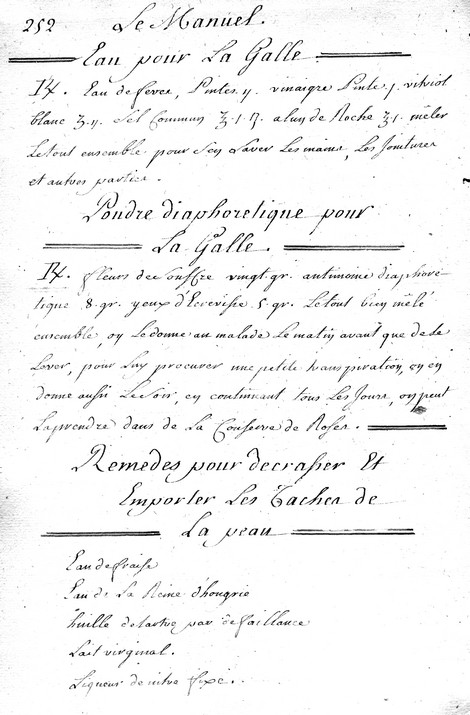 252 Le Manuel.
Eau pour La Galle
℞. Eau de feves, Pintes ij. vinaigre Pinte j. vitriol
blanc ʒ. ij. Sel Commun ʒ. i. alun de Roche ʒ. i. mêler
Le tout ensemble pour s'en Laver Les mains, Les Jointures
et autres parties.
Poudre diaphoretique pour
La Galle.
℞. fleurs de souffre vingt gr. antimoine diaphore-
tique 8. gr. yeux d'Ecrevisse 5. gr. Le tout bien mêlé
ensemble, on Le donne au malade Le matin avant que de se
Lever, pour Luy procurer une petite transpiration, on en
donne aussi Le soir, en continuant tous Les Jours, on peut
La prendre dans de La Conserve de Roses.
Remedes pour decrasser Et
Emporter Les Taches de
La peau
Eau de fraise
Eau de La Reine d'hongrie
huille de tartre par defaillance
Lait virginal.
Liqueur de nitre fixé.